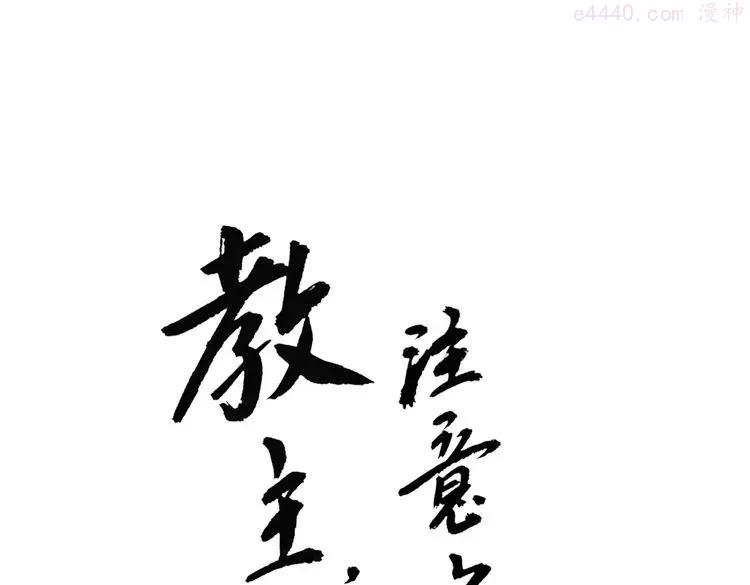 e4440.com 漫神
教主
注意